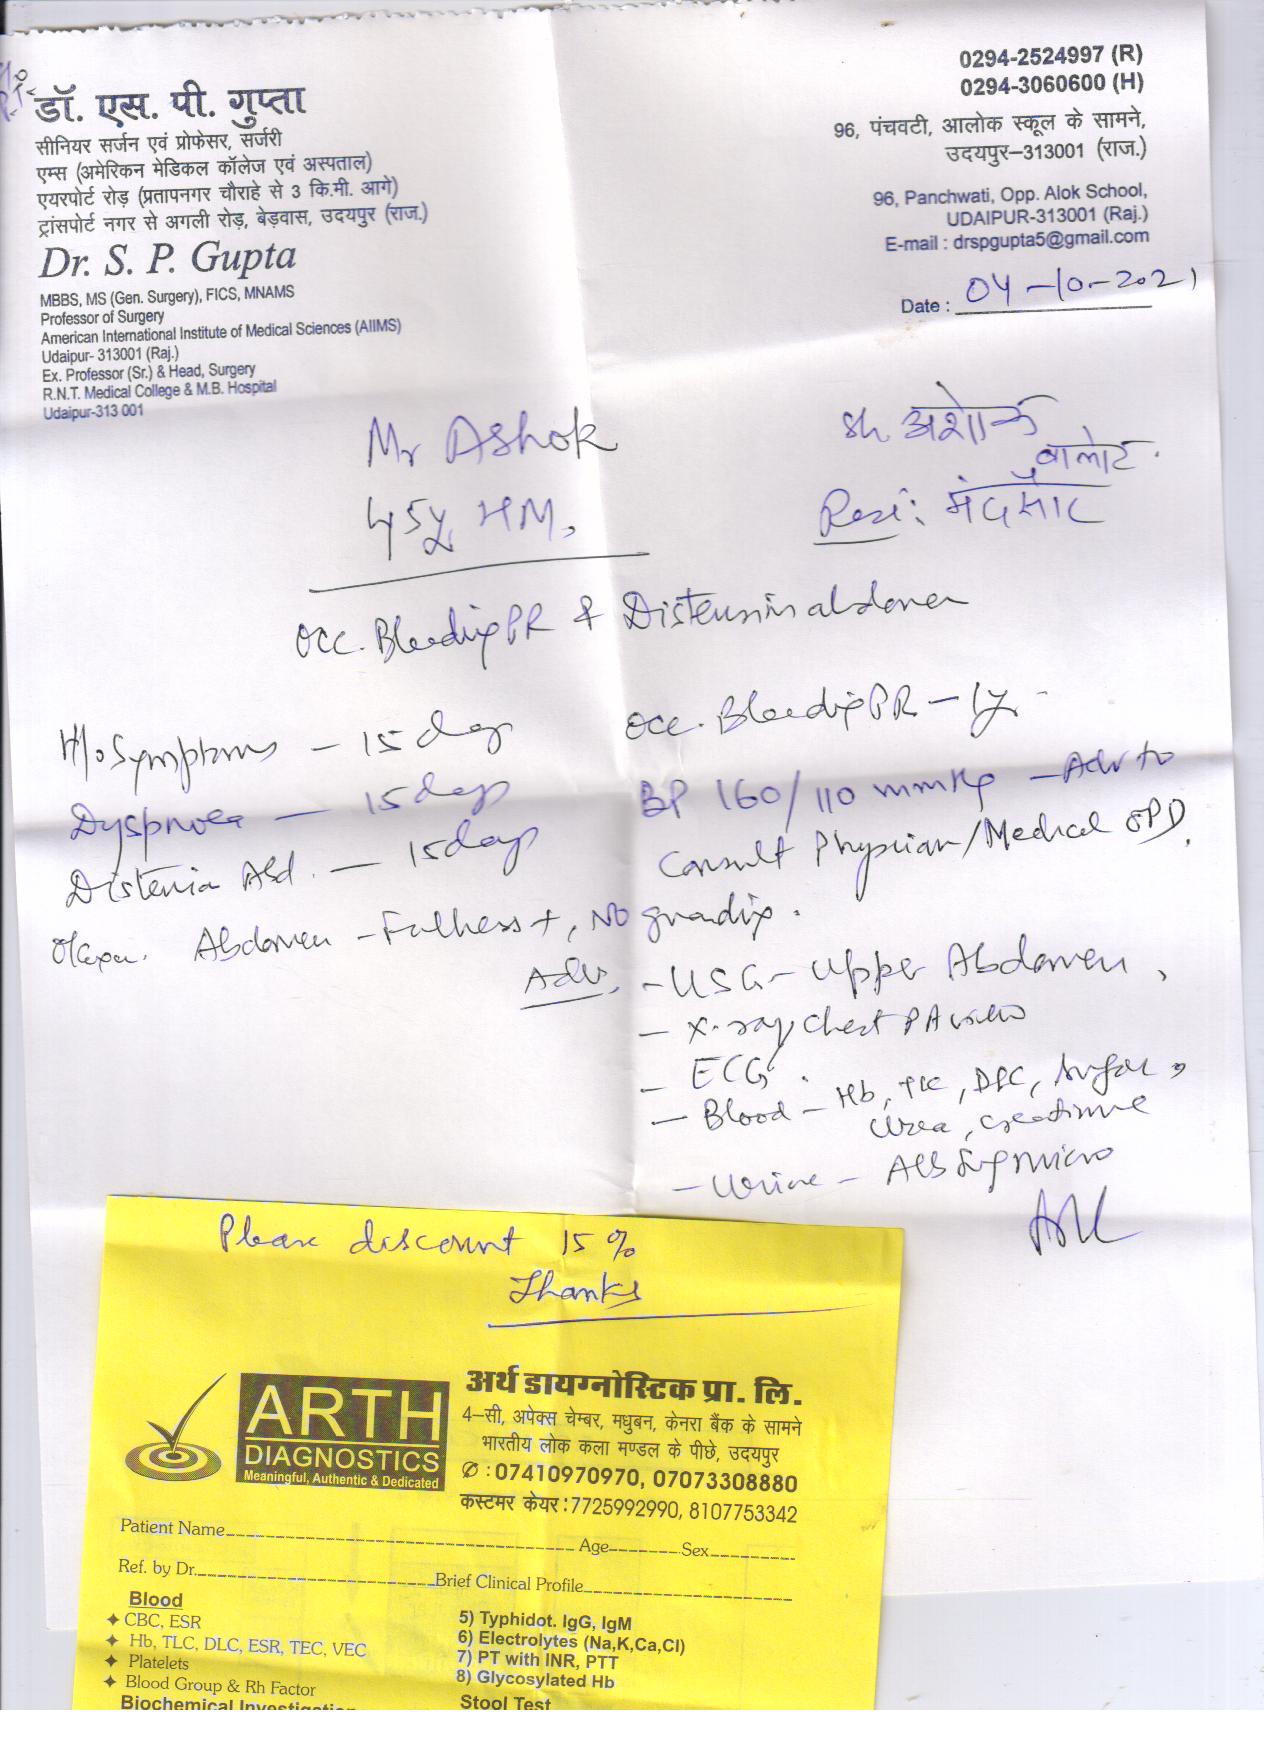 डॉ. एस. पी. गुप्ता
सीनियर सर्जन एवं प्रोफेसर, सर्जरी
एम्स (अमेरिकन मेडिकल कॉलेज एवं अस्पताल)
एयरपोर्ट रोड़ (प्रतापनगर चौराहे से 3 कि.मी. आगे)
ट्रांसपोर्ट नगर से अगली रोड़, बेड़वास, उदयपुर (राज.)
Dr. S. P. Gupta
MBBS, MS (Gen. Surgery), FICS, MNAMS
Professor of Surgery
American International Institute of Medical Sciences (AIIMS)
Udaipur- 313001 (Raj.)
Ex. Professor (Sr.) & Head, Surgery
R.N.T. Medical College & M.B. Hospital
Udaipur-313 001
0294-2524997 (R)
0294-3060600 (H)
96, पंचवटी, आलोक स्कूल के सामने,
उदयपुर–313001 (राज.)
96, Panchwati, Opp. Alok School,
UDAIPUR-313001 (Raj.)
E-mail : drspgupta5@gmail.com
Date : 04-10-2021
Mr Ashok
45y HM,
Sh. अशोक
Resi: मंदसौर
Occ. Bleeding PR & Distension abdomen
H/o Symptoms – 15 days
Dyspnoea – 15 days
Distension Abd. – 15 days
Occ. Bleeding PR – 1y
BP 160/110 mmHg – Adv to
Consult Physician/Medical OPD,
Abdomen – Fullness +, No guarding.
Adv, - USG - upper Abdomen,
- X-ray chest PA view
- ECG.
- Blood – Hb, TLC, DLC, Sugar,
Urea, creatinine
- Urine – micro
Please discount 15%
Thanks
ARTH
DIAGNOSTICS
Meaningful, Authentic & Dedicated
अर्थ डायग्नोस्टिक प्रा. लि.
4–सी, अपेक्स चेम्बर, मधुबन, केनरा बैंक के सामने
भारतीय लोक कला मण्डल के पीछे, उदयपुर
✆ : 07410970970, 07073308880
कस्टमर केयर : 7725992990, 8107753342
Patient Name Age Sex
Ref. by Dr. Brief Clinical Profile
Blood
✦ CBC, ESR
✦ Hb, TLC, DLC, ESR, TEC, VEC
✦ Platelets
✦ Blood Group & Rh Factor
Biochemical Investigation
5) Typhidot. IgG, IgM
6) Electrolytes (Na,K,Ca,Cl)
7) PT with INR, PTT
8) Glycosylated Hb
Stool Test